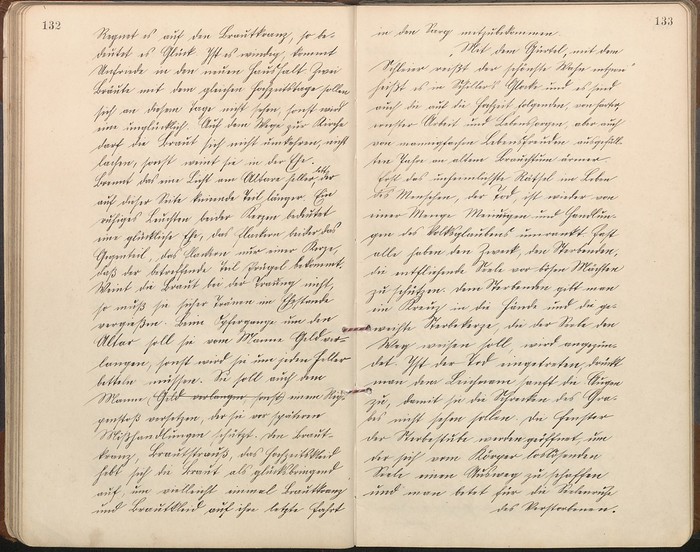 132
Regnet es auf den Brautkranz, so be-
deutet es Glück. Ist es windig, kommt
Unfriede in den neuen Haushalt. Zwei
Bräute mit dem gleichen Hochzeitstage sollen
sich an diesem Tage nicht sehen, sonst wird
eine unglücklich. Auf dem Wege zur Kirche
darf die Braut sich nicht umkehren, nicht
lachen, sonst weint sie in der Ehe.
Brennt das eine Licht am Altare heller, lebt der
auf dieser Seite kniende Teil länger. Ein
ruhiges Leuchten beider Kerzen bedeutet
eine glückliche Ehe, das Flackern beider das
Gegenteil, das Flackern nur einer Kerze,
daß der betreffende Teil Prügel bekommt.
Weint die Braut bei der Trauung nicht,
so muß sie sicher Tränen im Ehestande
vergießen. Beim Opfergange um den
Altar soll sie vom Manne Geld ver-
langen, sonst wird sie um jeden Heller
betteln müssen. Sie soll auch dem
Manne Geld verlangen sonst einen Rip-
penstoß versetzen, der sie vor späteren
Mißhandlungen schützt. Den Braut-
kranz, Brautstrauß, das Hochzeitskleid
hebt sich die Braut als glückbringend
auf, um vielleicht einmal Brautkranz
und Brautkleid auf ihre letzte Fahrt
133
in den Sarg mitzubekommen.
"Mit dem Gürtel, mit dem
Schleier reißt der schöne Wahn entzwei"
heißt es in Schillers Glocke und es sind
auch die auf die Hochzeit folgenden, von
ernster Arbeit und Lebenssorgen, aber auch
von mannigfachen Lebensfreuden ausgefüll-
ten Jahre an altem Brauchtum ärmer.
Erst das unheimlichste Rätsel im Leben
des Menschen, der Tod, ist wieder von
einer Menge Meinungen und Handlun-
gen des Volksglaubens umrankt. Fast
alle haben den Zweck, den Sterbenden,
die entfliehende Seele vor bösen Mächten
zu schützen. Dem Sterbenden gibt man
ein Kreuz in die Hände und die ge-
weihte Sterbekerze, die der Seele den
Weg weisen soll, wird angezün-
det. Ist der Tod eingetreten, drückt
man dem Leichnam sanft die Augen
zu, damit sie die Schrecken des Gra-
bes nicht sehen sollen. Die Fenster
der Sterbestube werden geöffnet, um
der sich vom Körper loslösenden
Seele einen Ausweg zu schaffen
und man betet für die Seelenruhe
des Verstorbenen.